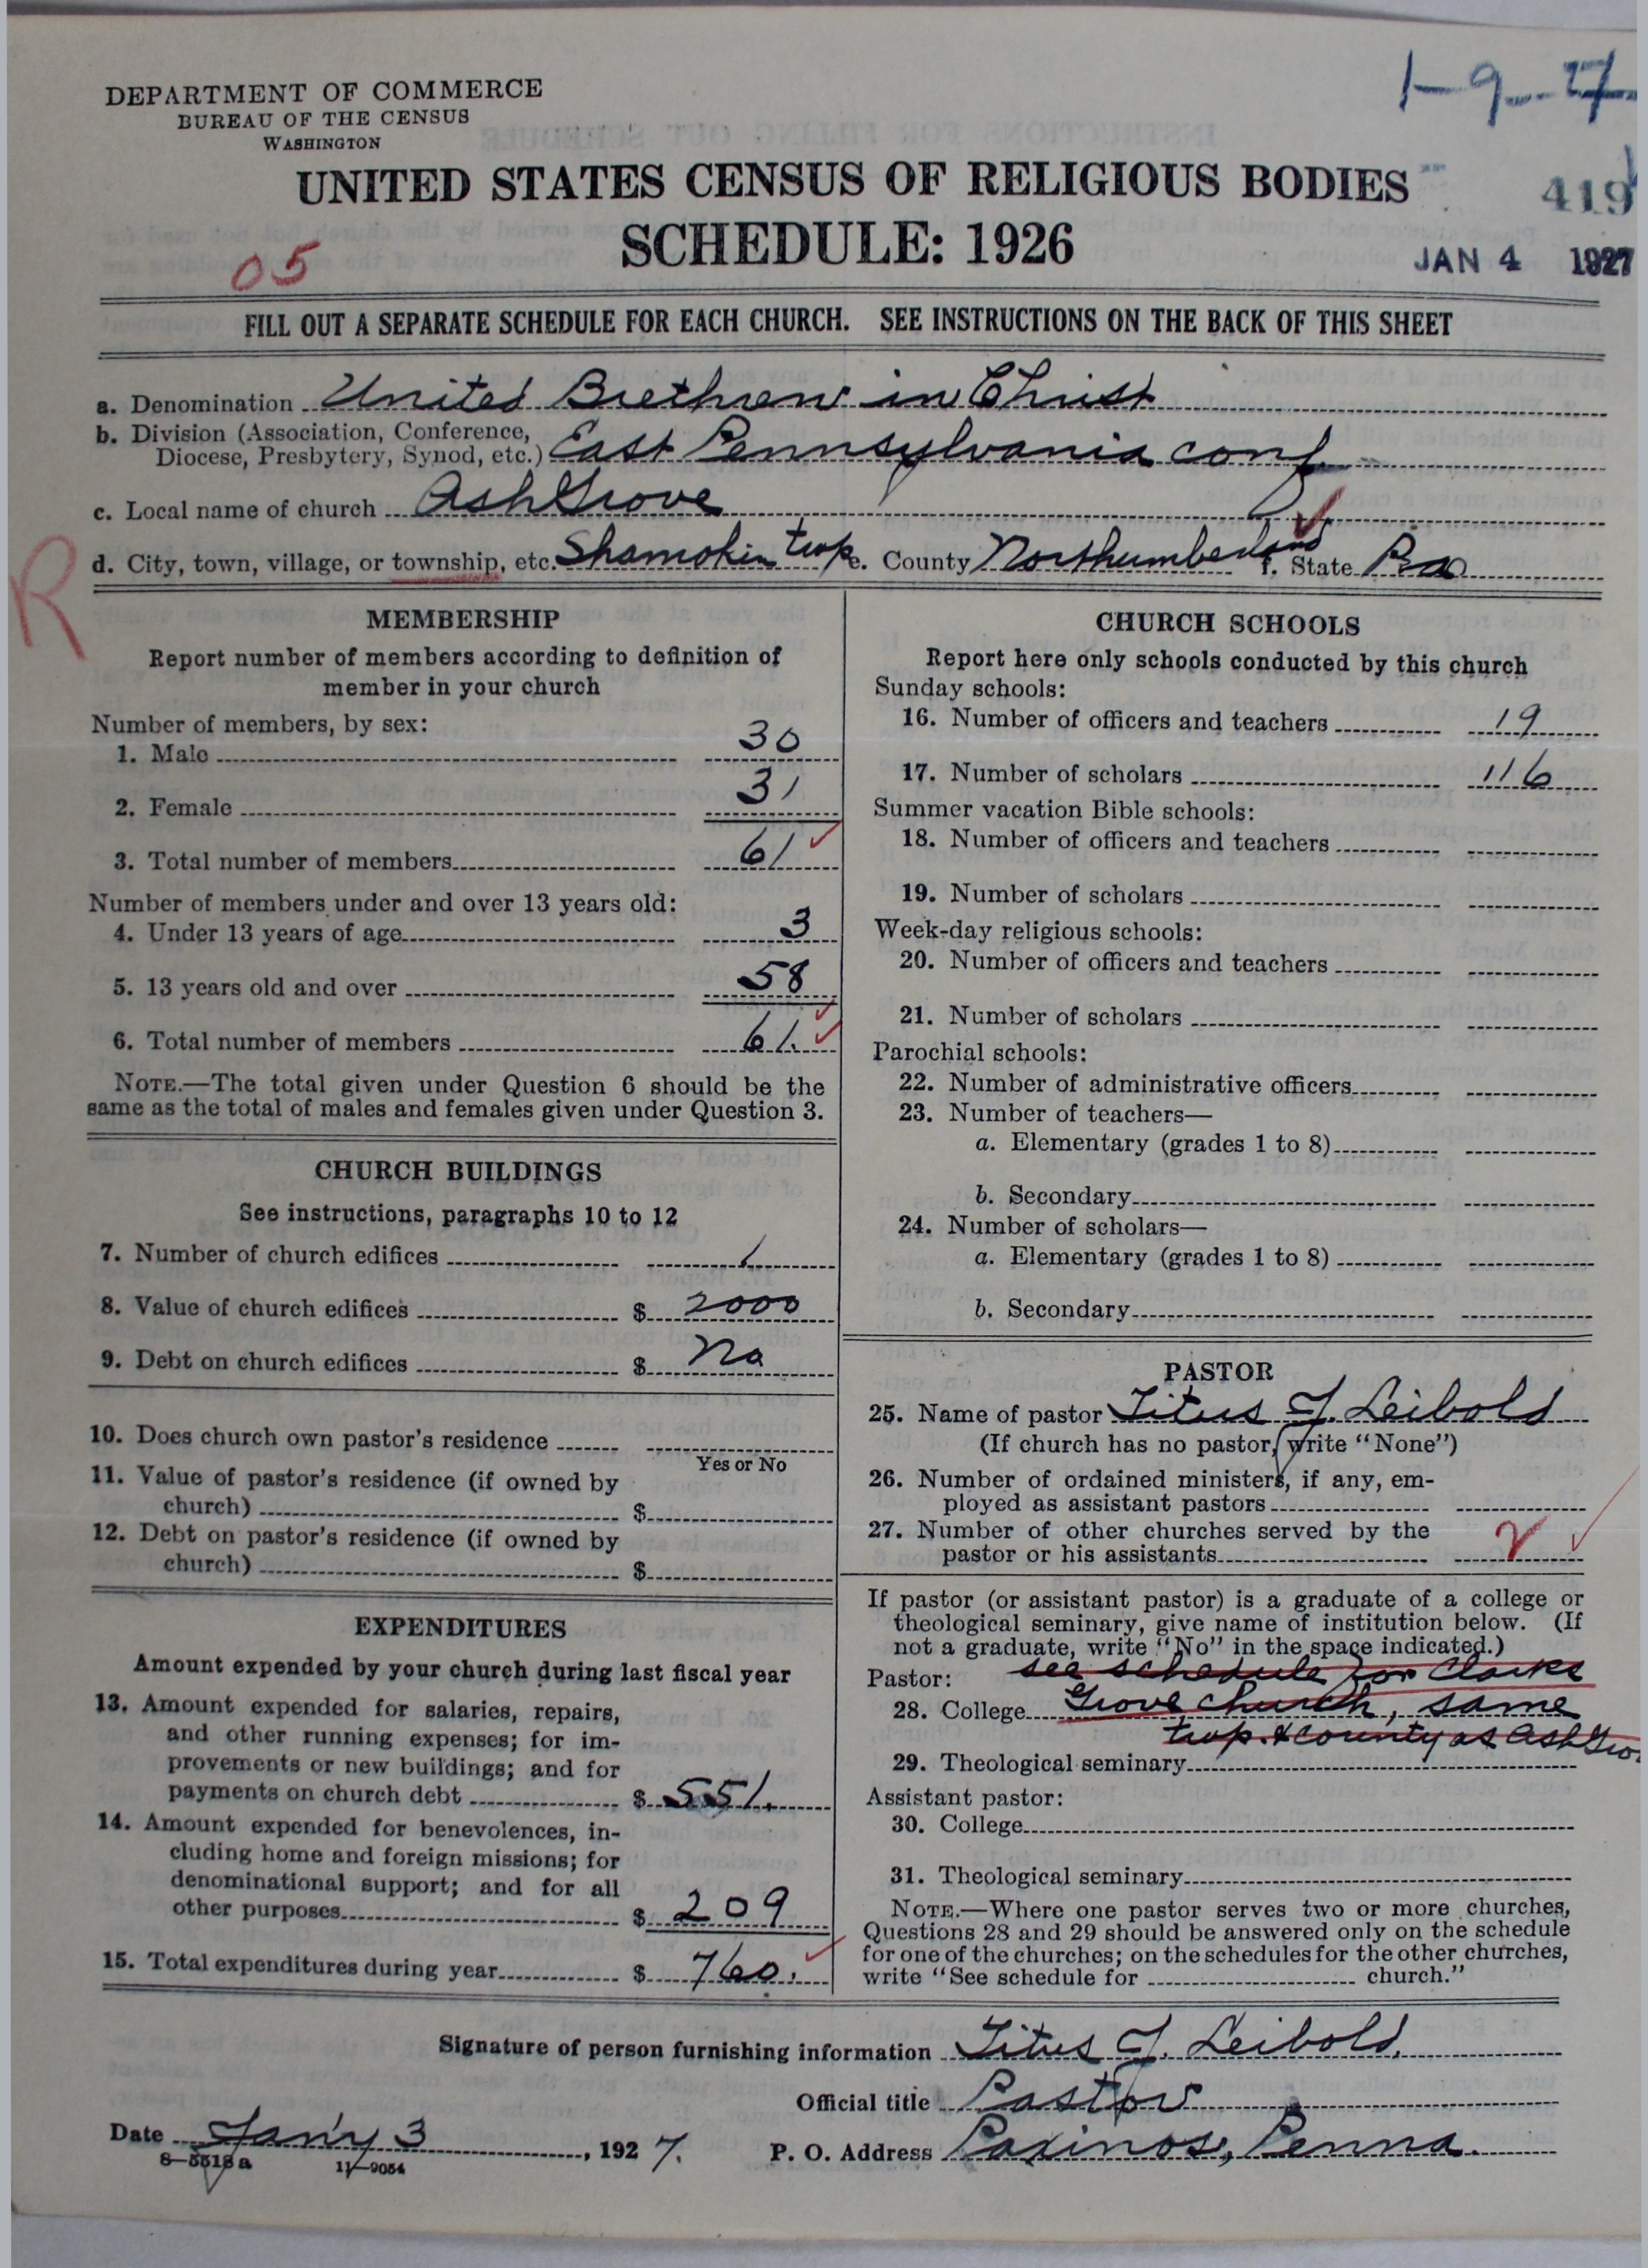 1-9-27
DEPARTMENT OF COMMERCE
BUREAU OF THE CENSUS
WASHINGTON
UNITED STATES CENSUS OF RELIGIOUS BODIES
419
SCHEDULE: 1926
JAN 4 1927
05
FILL OUT A SEPARATE SCHEDULE FOR EACH CHURCH. SEE INSTRUCTIONS ON THE BACK OF THIS SHEET
a. Denomination United Brethren in Christ
b. Division (Association, Conference,
Diocese, Presbytery, Synod, etc.) East Pennsylvania conf
c. Local name of church Ash Grove
R
d. City, town, village, or township, etc. Shamokin twp e. County Northumberland f. State Pa
MEMBERSHIP
Report number of members according to definition of
member in your church
Number of members, by sex:
1. Male 30
2. Female 31
3. Total number of members 61
Number of members under and over 13 years old:
4. Under 13 years of age 3
5. 13 years old and over 58
6. Total number of members 61.
NOTE.—The total given under Question 6 should be the
same as the total of males and females given under Question 3.
CHURCH BUILDINGS
See instructions, paragraphs 10 to 12
7. Number of church edifices 1
8. Value of church edifices $ 2000
9. Debt on church edifices $ No
10. Does church own pastor's residence
Yes or No
11. Value of pastor's residence (if owned by
church) $
12. Debt on pastor's residence (if owned by
church) $
EXPENDITURES
Amount expended by your church during last fiscal year
13. Amount expended for salaries, repairs,
and other running expenses; for im-
provements or new buildings; and for
payments on church debt $ 551.
14. Amount expended for benevolences, in-
cluding home and foreign missions; for
denominational support; and for all
other purposes $ 209
15. Total expenditures during year $ 760.
CHURCH SCHOOLS
Report here only schools conducted by this church
Sunday schools:
16. Number of officers and teachers 19
17. Number of scholars 116
Summer vacation Bible schools:
18. Number of officers and teachers
19. Number of scholars
Week-day religious schools:
20. Number of officers and teachers
21. Number of scholars
Parochial schools:
22. Number of administrative officers
23. Number of teachers—
a. Elementary (grades 1 to 8)
b. Secondary
24. Number of scholars—
a. Elementary (grades 1 to 8)
b. Secondary
PASTOR
25. Name of pastor Titus J. Leibold
(If church has no pastor, write "None")
26. Number of ordained ministers, if any, em-
ployed as assistant pastors
27. Number of other churches served by the
pastor or his assistants 2
If pastor (or assistant pastor) is a graduate of a college or
theological seminary, give name of institution below. (If
not a graduate, write "No" in the space indicated.)
Pastor: see schedule for Clarks
28. College Grove church, same
twp. & county as Ash Gro
29. Theological seminary
Assistant pastor:
30. College
31. Theological seminary
NOTE.—Where one pastor serves two or more churches,
Questions 28 and 29 should be answered only on the schedule
for one of the churches; on the schedules for the other churches,
write "See schedule for church."
Signature of person furnishing information Titus J. Leibold.
Official title Pastor
Date Jan'y 3, 1927. P. O. Address Paxinos, Penna.
8—5518 a 11—9054